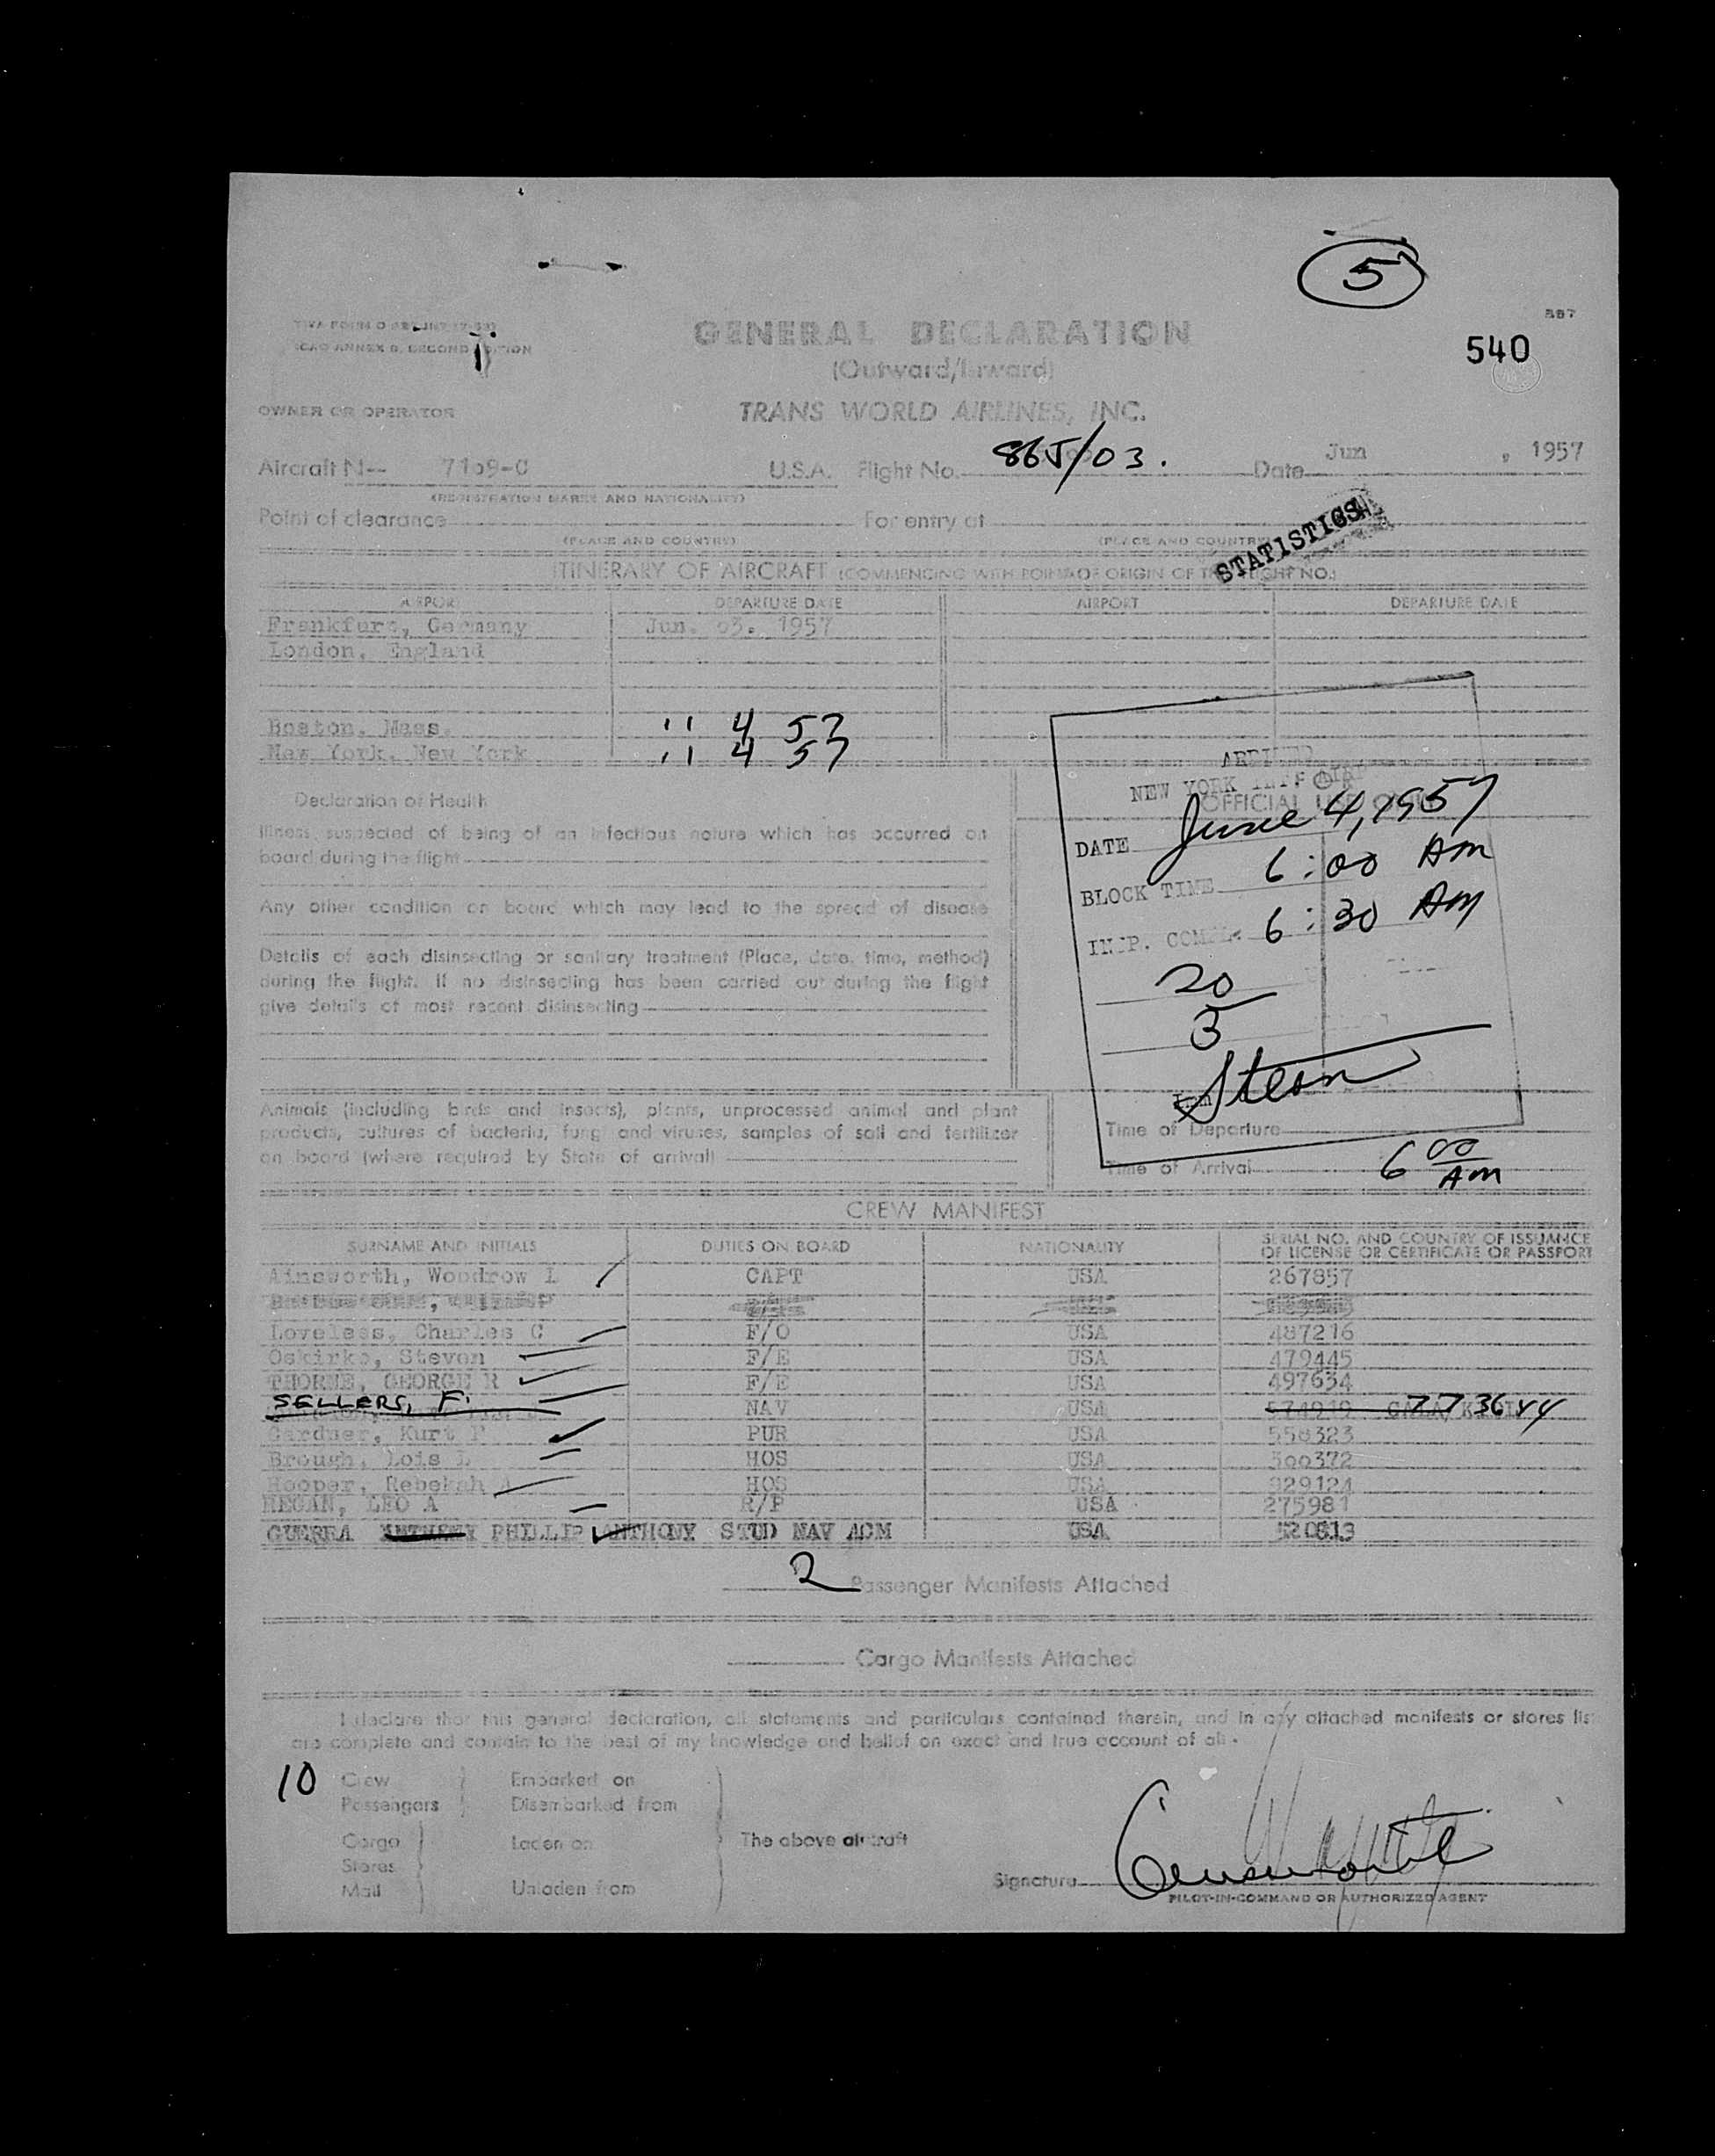 5
557
540
GENERAL DECLARATION
(Outward/Inward)
OWNER OR OPERATOR TRANS WORLD AIRLINES, INC.
Aircraft N-- U.S.A. Flight No. 865/03. Date Jun , 1957
(REGISTRATION MARKS AND NATIONALITY)
Point of clearance For entry at
(PLACE AND COUNTRY) (PLACE AND COUNTRY
STATISTICS
ITINERARY OF AIRCRAFT (COMMENCING WITH POINT OF ORIGIN OF FLIGHT NO.)
AIRPORT DEPARTURE DATE AIRPORT DEPARTURE DATE
Frankfurt, Germany Jun. 03. 1957
London, England
Boston, Mass. " 4 57
New York, New York " 4 57
ARRIVED
NEW YORK
OFFICIAL USE ONLY
DATE June 4, 1957
BLOCK TIME 6:00 AM
INSP. COMPL. 6:30 AM
20
3
Stern
Declaration of Health
Illness suspected of being of an infectious nature which has occurred on
board during the flight
Any other condition on board which may lead to the spread of disease
Details of each disinsecting or sanitary treatment (Place, date, time, method)
during the flight. If no disinsecting has been carried out during the flight
give details of most recent disinsecting
Animals (including birds and insects), plants, unprocessed animal and plant
products, cultures of bacteria, fungi and viruses, samples of soil and fertilizer
on board (where required by State of arrival)
Time of Departure
Time of Arrival 6 00 AM
CREW MANIFEST
SURNAME AND INITIALS DUTIES ON BOARD NATIONALITY SERIAL NO. AND COUNTRY OF ISSUANCE
OF LICENSE OR CERTIFICATE OR PASSPORT
Ainsworth, Woodrow L CAPT USA 267857
Loveless, Charles C F/O USA 487216
Oskirko, Steven F/E USA 479445
THORNE, GEORGE R F/E USA 497634
SELLERS, F. NAV USA 773644
Gardner, Kurt F PUR USA 558323
Brough, Lois L HOS USA 500372
Hooper, Rebekah A HOS USA 329124
REGAN, LEO A R/P USA 275981
GUERRA PHILLIP ANTHONY STUD NAV ACM USA 520813
2 Passenger Manifests Attached
Cargo Manifests Attached
I declare that this general declaration, all statements and particulars contained therein, and in any attached manifests or stores lis
are complete and contain to the best of my knowledge and belief an exact and true account of all.
10 Crew Embarked on
Passengers Disembarked from
Cargo Laden on The above aircraft
Stores
Mail Unladen from
Signature Ainsworth
PILOT-IN-COMMAND OR AUTHORIZED AGENT